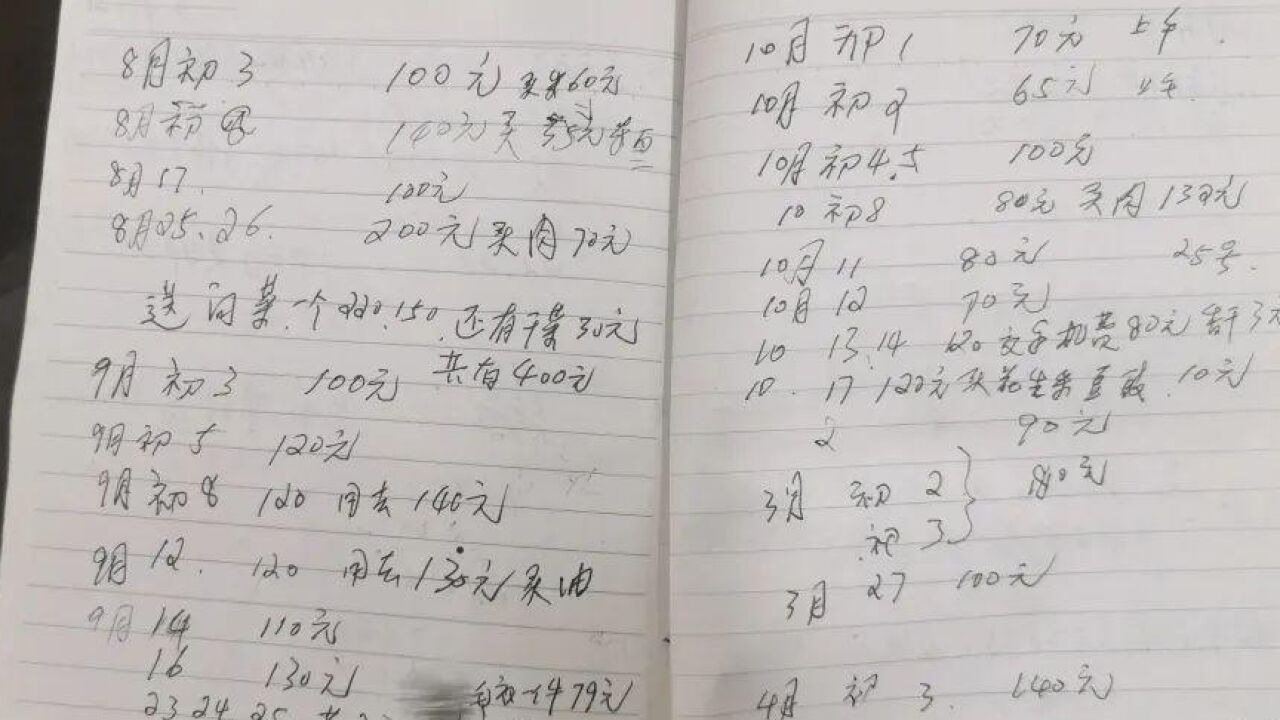 8月初3 100元 买米60元
8月初四 140元买
8月17. 100元
8月25、26. 200元买肉70元
送 菜.个 150.还有干菜30元
共有400元
9月初3 100元
9月初5 120元
9月初8 120 用去140元
9月12. 120 用去130元买油
9月14 110元
16 130元
23 24 25
479元
10月初1 70元 上午.
10月初2 65元 上午.
10月初4.5 100元
10初8 80元买肉130元
10月11 80元 25号.
10月12 70元
10 13.14 120交手机费80元 3元
10.17 120元买花生米 10元
2 90元
3月初2
初3 180元
3月27 100元
4月初3. 140元